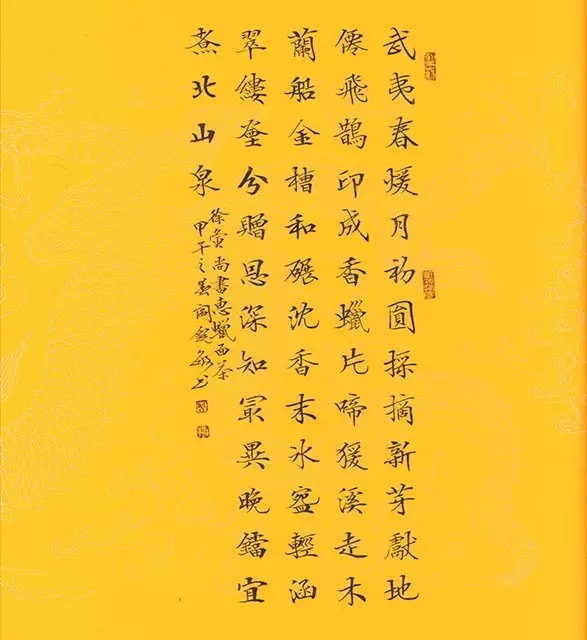 武夷春煖月初圓採摘新芽獻地
僊飛鵲印成香蠟片啼猨溪走木
蘭船金槽和碾沈香末冰盌輕涵
翠縷分贈恩深知冣異晚鐺宜
煮北山泉
徐夤尚書惠蠟面茶
甲午之春書